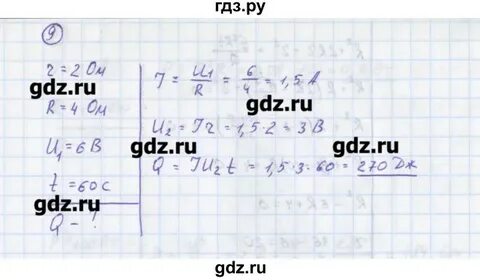 гдз.ру
9
r = 2 Ом
gdz.ru
R = 4 Ом
U₁ = 6 В
t = 60 с
gdz.ru
Q - ?
I = U₁/R = 6/4 = 1,5 А
gdz.ru
U₂ = Ir = 1,5·2 = 3 В
Q = IU₂t = 1,5·3·60 = 270 Дж
gdz.ru
gdz.ru